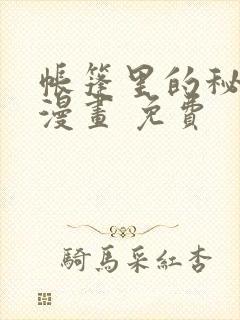 帳篷里的秘
漫畫 免費
騎馬采紅杏